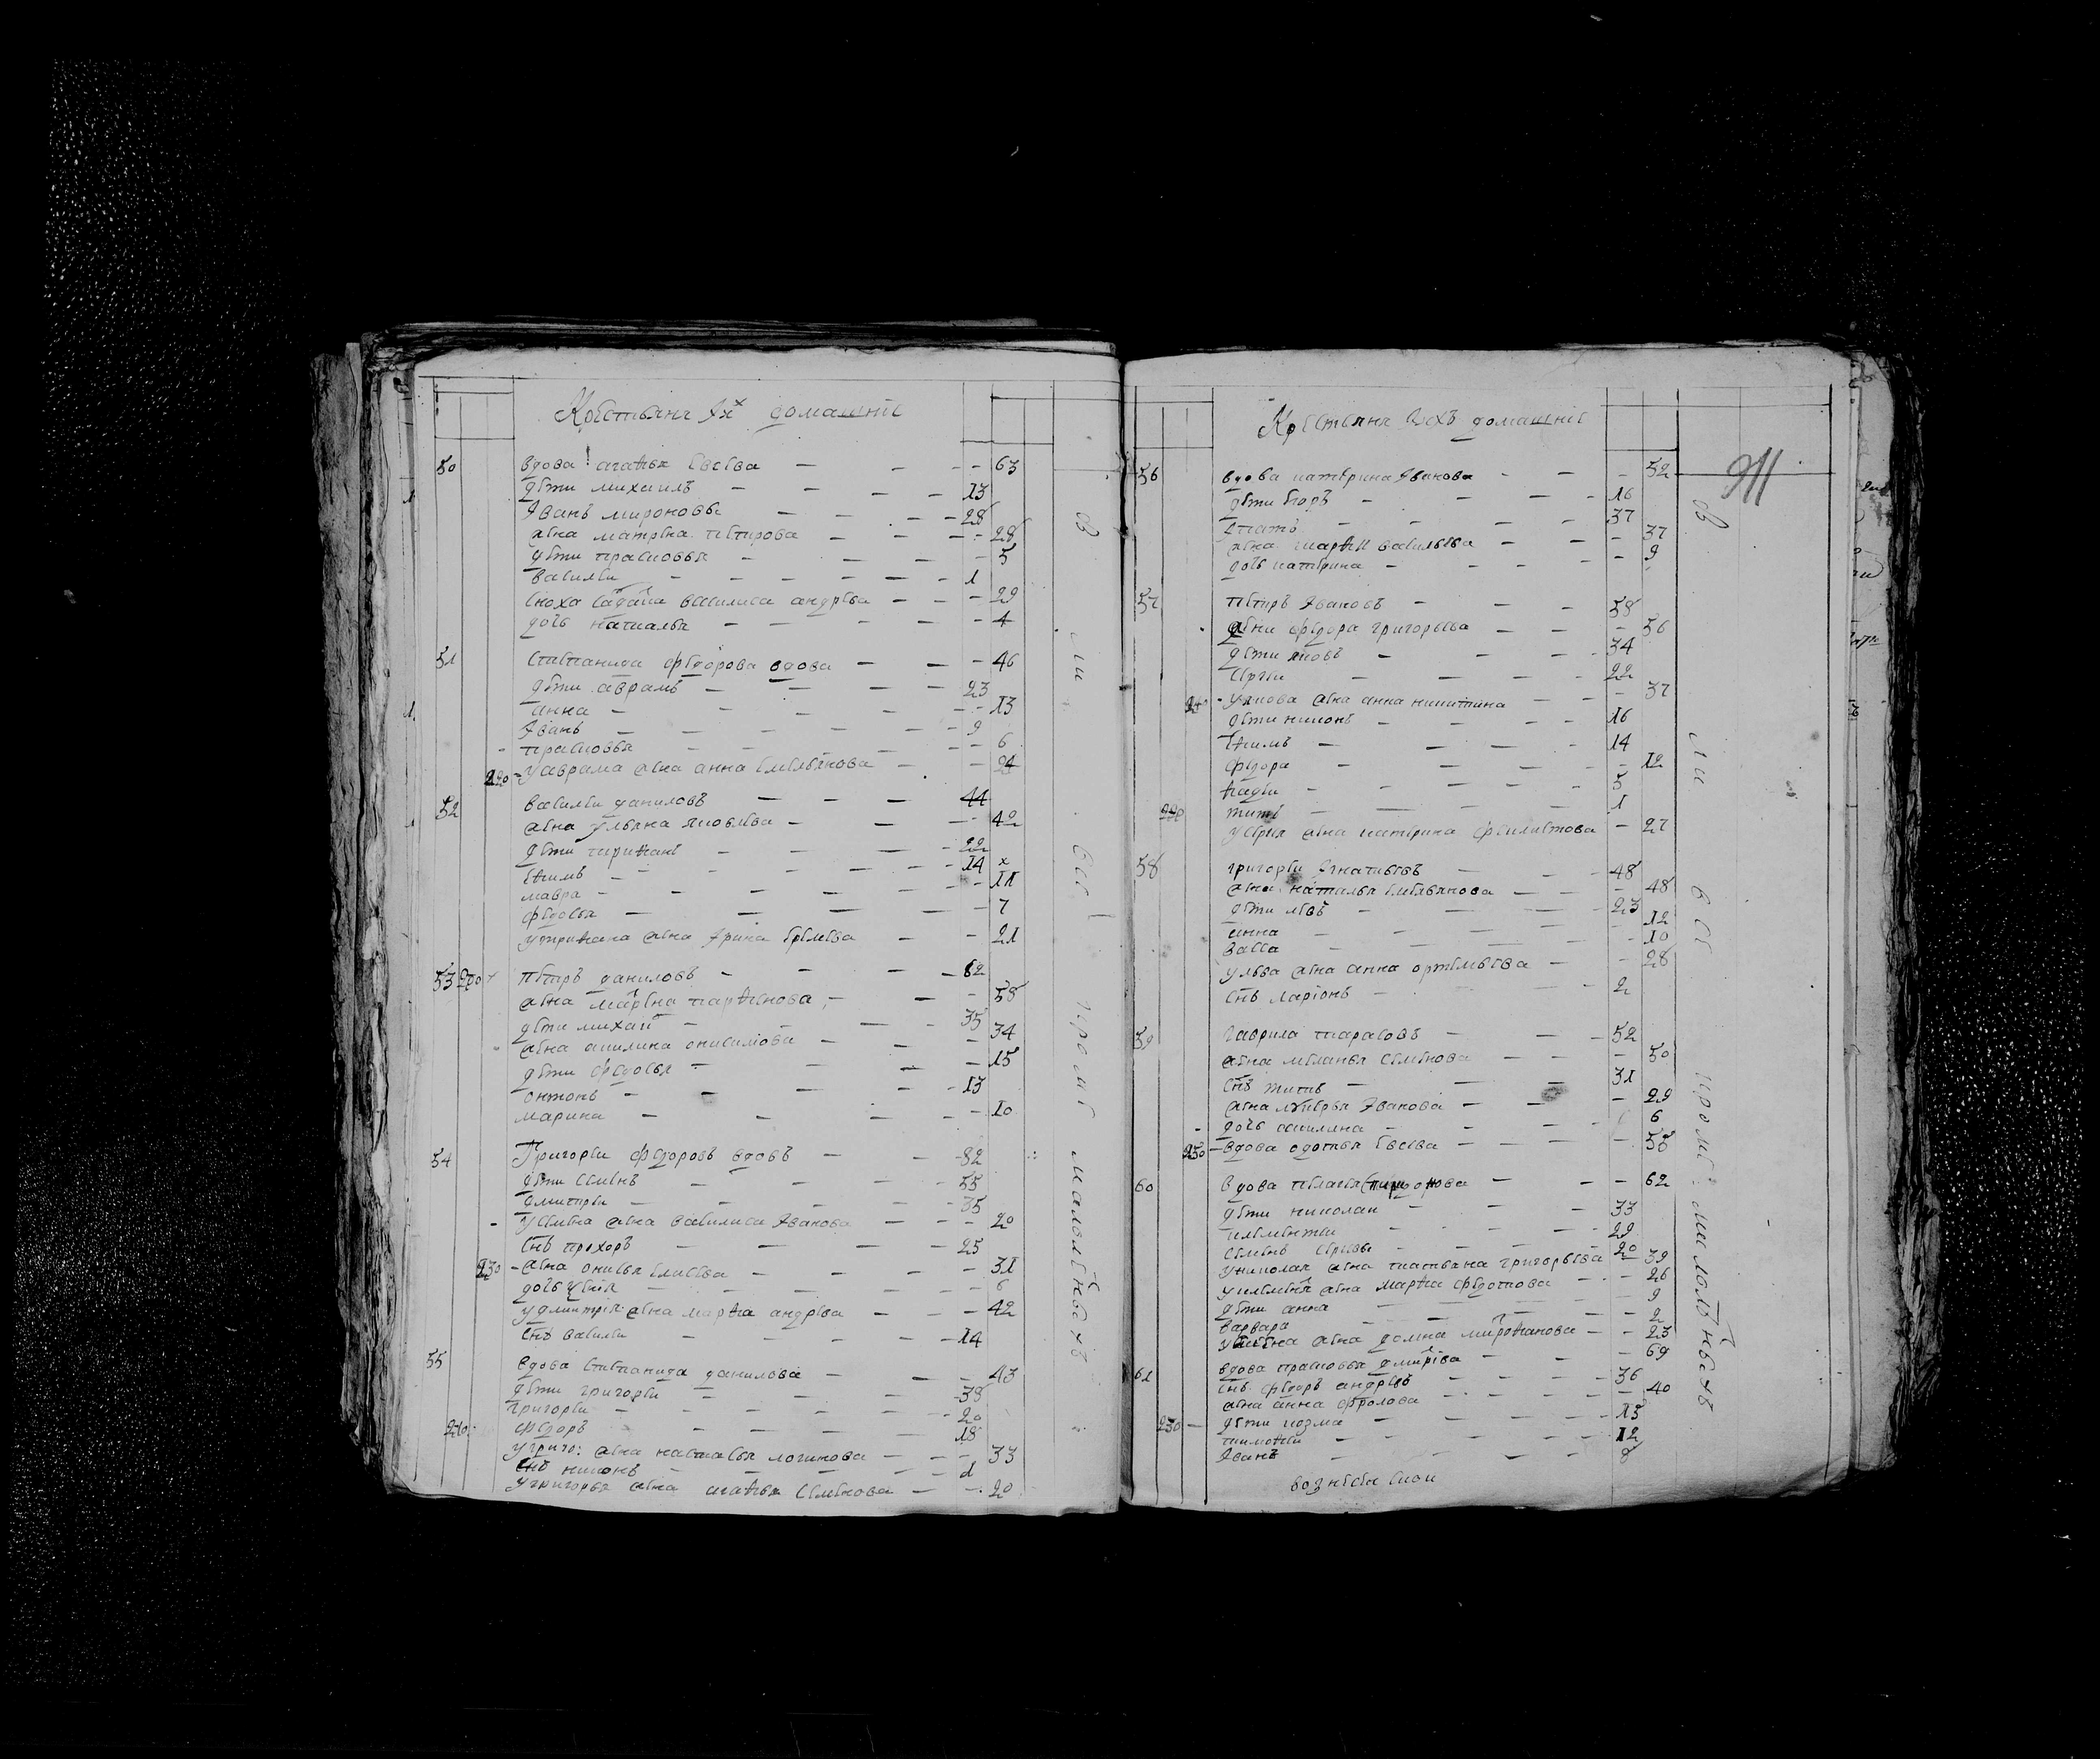 Крестьяне Их домашніе
50 вдова агафья евсева — 63
дети михаилъ — 13
Иванъ мироновы — 28
жена матрена петрова — 28
дети прасковья — 5
василеи — 1
сноха василиса андрева — 29
дочь наталья — 4
51 степанида федорова вдова — 46
дети аврамъ — 23
анна — 13
Иванъ — 9
прасковья — 6
220 у аврама жена анна емельянова — 24
52 василеи даниловъ — 44
жена ульяна яковлева — 42
дети — 22
ефимъ — 14
мавра — 11
федосья — 7
жена Ирина еремева — 21
53 петръ даниловъ — 62
жена парфенова — 58
дети михаи — 35
жена акилина онисимова — 34
дети федосья — 15
онтонъ — 13
марина — 10
54 Григореи федоровъ вдовъ — 82
дети семенъ — 55
дмитреи — 35
у семена жена василиса Иванова — 20
снъ прохоръ — 25
230 жена онисья елисева — 31
дочь — 6
у дмитрія жена марфа андрева — 42
снъ василеи — 14
55 вдова степанида данилова — 43
дети григореи — 38
григореи — 20
федоръ — 18
у григо: жена настасья логинова — 33
снъ никонъ — 1
у григорья жена агафья семенова — 20
в ли всег кроме малолетныхъ
Крестьяне Ихъ домашніе
56 вдова катерина Иванова — 52
дети егоръ — 16
37
жена марфа васильева — 37
дочь катерина — 9
57 петръ Ивановъ — 58
жена федора григорьева — 56
дети яковъ — 34
сергеи — 22
у якова жена анна никитина — 37
дети никонъ — 16
ефимъ — 14
федора — 12
фадеи — 5
титъ — 1
жена катерина феклистова — 27
58 григореи Игнатьевъ — 48
жена наталья емельянова — 48
дети левъ — 23
анна — 12
васса — 10
у льва жена анна ортемьева — 28
снъ ларіонъ — 2
59 гаврила тарасовъ — 52
жена меланья семенова — 50
снъ титъ — 31
жена лукерья Иванова — 29
дочь акилина — 6
250 вдова одотья евсева — 55
60 вдова пелагея — 62
дети николаи — 33
клементеи — 29
семенъ — 20
у николая жена татьяна григорьева — 39
жена марфа федотова — 26
дети анна — 9
варвара — 2
у семена жена домна митрофанова — 23
61 вдова прасковья — 69
снъ федоръ андревъ — 36
жена анна фролова — 40
дети козма — 15
тимофеи — 12
Иванъ — 8
вознесенскои
в ли все кроме: малолетныхъ